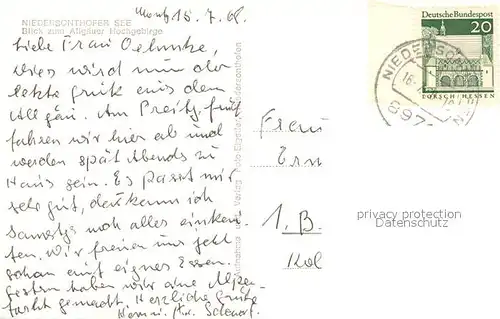 15.7.68.
NIEDERSONTHOFER SEE
Blick zum Allgäuer Hochgebirge
Liebe Frau
dies wird nun der
letzte Gruß aus dem
Allgäu. Am Freitg. früh
fahren wir hier ab und
werden spät Abends zu
Haus sein. Es passt mir
sehr gut, da kann ich
Samstgs noch alles einkau
fen. Wir freuen uns jetzt
schon auf eignes Essen.
Gestern haben wir eine Alpen-
fahrt gemacht. Herzliche Grüße
Deutsche Bundespost
20
LORSCH / HESSEN
Frau
Ern
1. B.
Köl
privacy protection
Datenschutz